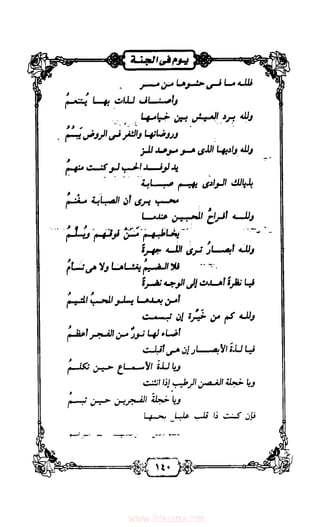 يوم في الجنة
فلله ما في حشوها من مسر
وأصناف لذات بها يُتنعمُ
ولله برد العيش بين خيامها
وروضاتها والثغر في الروض يبسُمُ
ولله واديها الذي هو موعد المز
يد لوفد الحب لو كنت منهمُ
بذيالك الوادي يهيم صبابة
محب يرى أن الصبابة مغنمُ
ولله أفراحُ المحبين عندما
يخاطبهم مَنْ فوقهم ويُسلّمُ
ولله أبصارٌ ترى الله جهرةً
فلا الضيمُ يغشاها ولا هي تسأمُ
فيا نظرةً أهدت إلى الوجه نضرةً
أمن بعدها يسلو المحبُّ المتيمُ
ولله كم من خَيْرة إن تبسمت
أضاء لها نورٌ من الفجر أعظمُ
فيا لذة الأبصار إن هي أقبلت
ويا لذة الأسماع حين تكلمُ
ويا خجلة الغصن الرطيب إذا انثنت
ويا خجلة الفجرين حين تبسمُ
فإن كنت ذا قلب عليل بحبها
١٤٠
www.ibtesama.com